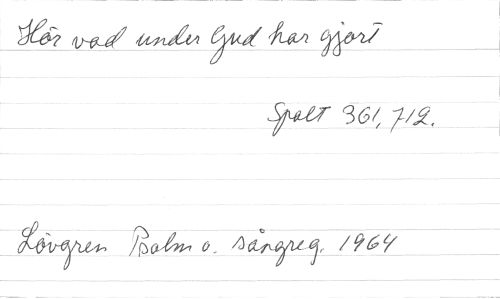 Hör vad under Gud har gjort
Spalt 361, 712.
Lövgren Psalm o. sångreg. 1964